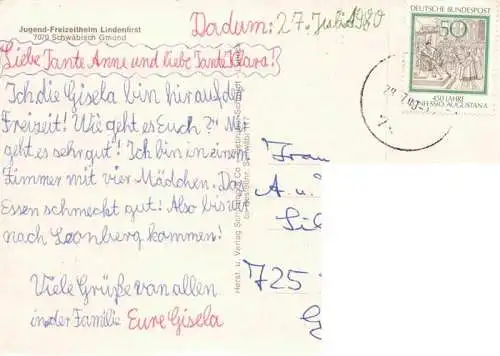 Jugend-Freizeitheim Lindenfirst
7070 Schwäbisch Gmünd
Dadum: 27. Juli 1980
DEUTSCHE BUNDESPOST
50
450 JAHRE
CONFESSIO AUGUSTANA
Liebe Tante Anni und liebe Tante Clara!
Ich die Gisela bin hir auf der
Freizeit! Wie geht es Euch? Mir
geht es sehr gut! Ich bin in einem
Zimmer mit vier Mädchen. Das
Essen schmeckt gut! Also bis wir
nach Leonberg kommen!
Viele Grüße van allen
in der Familie Eure Gisela
Herst. u. Verlag
Frau
A. u.
725